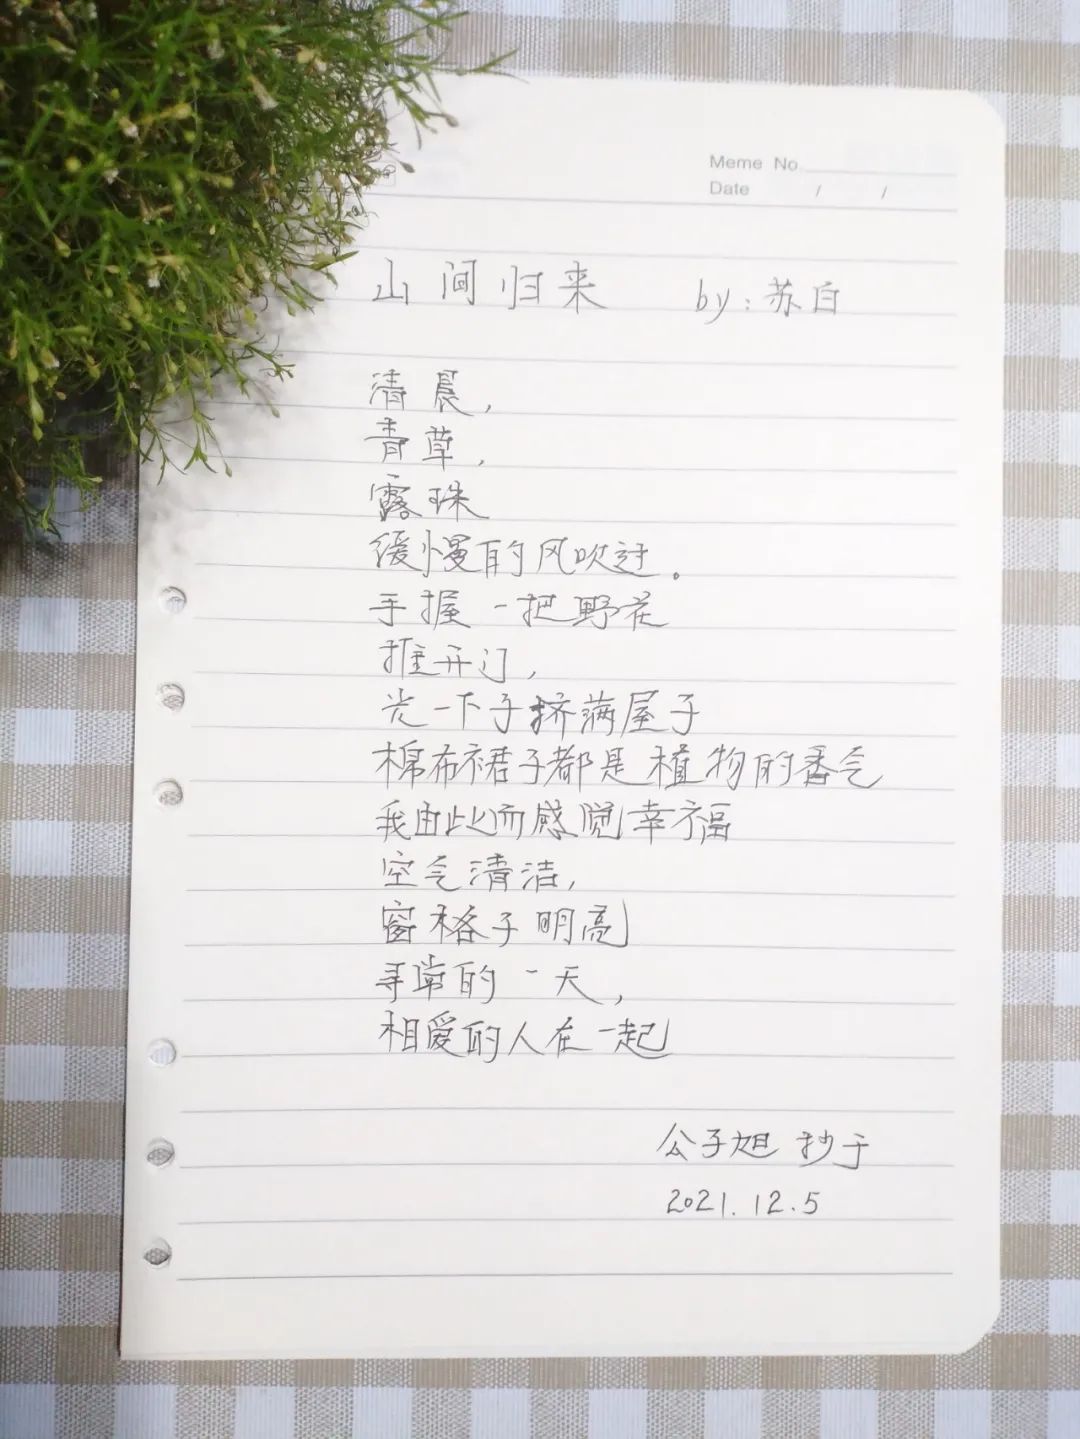 Meme No.
Date / /
山间归来 by:苏白
清晨,
青草,
露珠
缓慢的风吹过。
手握一把野花
推开门,
光一下子挤满屋子
棉布裙子都是植物的香气
我由此而感觉幸福
空气清洁,
窗格子明亮
寻常的一天,
相爱的人在一起
公子旭 抄于
2021.12.5